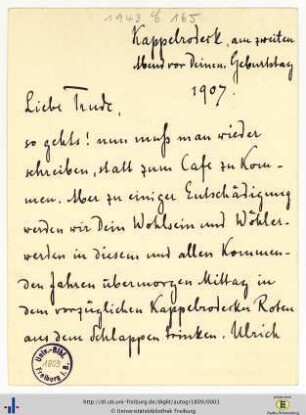 1943 & 165
Kappelrodeck, am zweiten
Abend vor Deinem Geburtstag
1907.
Liebe Trude,
so gehts! nun muß man wieder
schreiben, statt zum Cafe zu kom-
men. Aber zu einiger Entschädigung
werden wir Dein Wohlsein und Wohler-
werden in diesem und allen kommen-
den Jahren übermorgen Mittag in
dem vorzüglichen Kappelrodecker Roten
aus dem Schlappen trinken. Ulrich
Univ.-Bibl.
1809
Freiburg i. B.
http://dl.ub.uni-freiburg.de/diglit/autogr1809/0001
© Universitätsbibliothek Freiburg